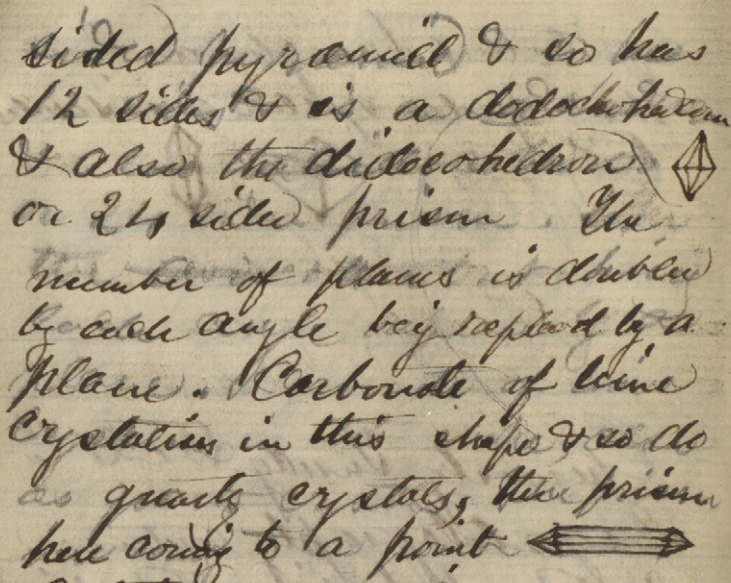 sided pyramid & so has
12 sides & is a dodochohedron
& also the didocohedron
or 24 sided prism. The
number of planes is doubled
by each angle beig replaced by a
plane. Carbonate of lime
crystalises in this shape & so do
quartz crystals, the prism
here comig to a point